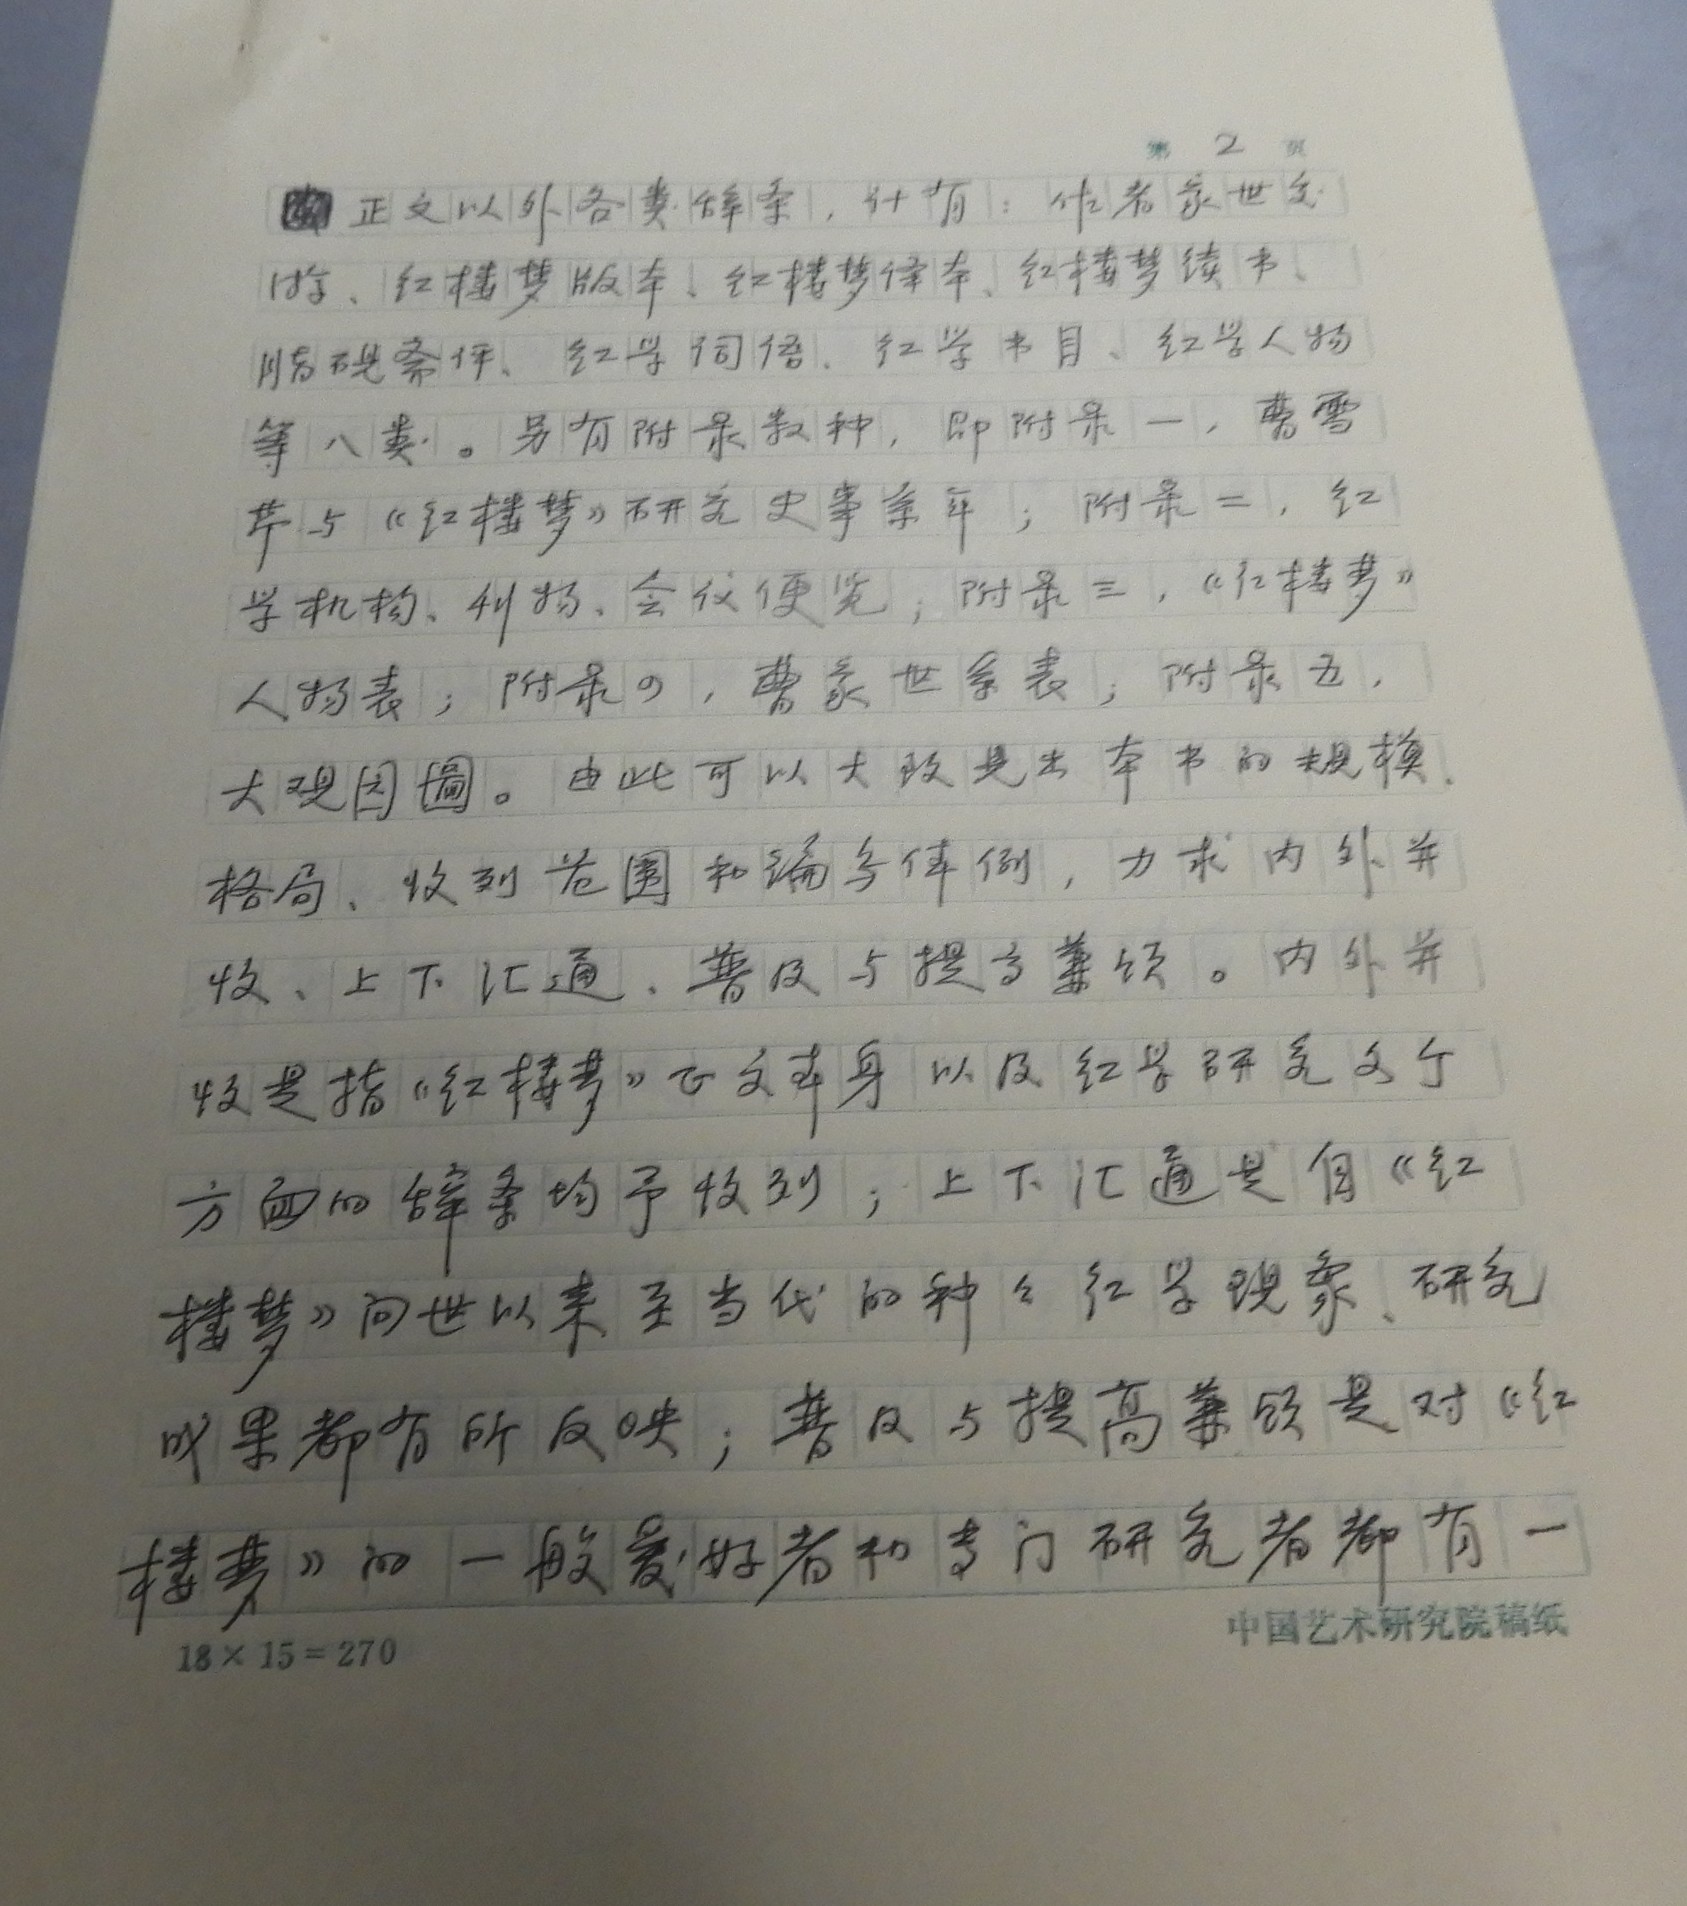 第 2 页
正文以外各类辞条，计有：作者家世交
游、红楼梦版本、红楼梦译本、红楼梦续书、
脂砚斋评、红学词语、红学书目、红学人物
等八类。另有附录数种，即附录一，曹雪
芹与《红楼梦》研究史事系年；附录二，红
学机构、刊物、会议便览；附录三，《红楼梦》
人物表；附录四，曹家世系表；附录五，
大观园图。由此可以大致见出本书的规模、
格局、收列范围和编写体例，力求内外并
收、上下汇通、普及与提高兼顾。内外并
收是指《红楼梦》正文本身以及红学研究各个
方面的辞条均予收列；上下汇通是自《红
楼梦》问世以来至当代的种々红学现象、研究
成果都有所反映；普及与提高兼顾是对《红
楼梦》的一般爱好者和专门研究者都有一
18×15=270
中国艺术研究院稿纸